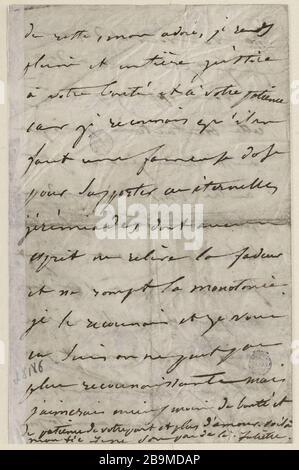 de reste, mon adoré, je rends
pleine et entière justice
à votre bonté et à votre patience
car je reconnais qu'il en
faut une fameuse dose
pour supporter ces éternelles
jérémiades dont aucun
esprit ne relève la fadeur
et ne rompt la monotonie
je le reconnais et je vous
en suis on ne peut pas
plus reconnaissante mais
j'aimerais mieux moins de bonté et
de patience de votre part et plus d'amour
Juliette
alamy
Image ID: 2B9MDAP
www.alamy.com